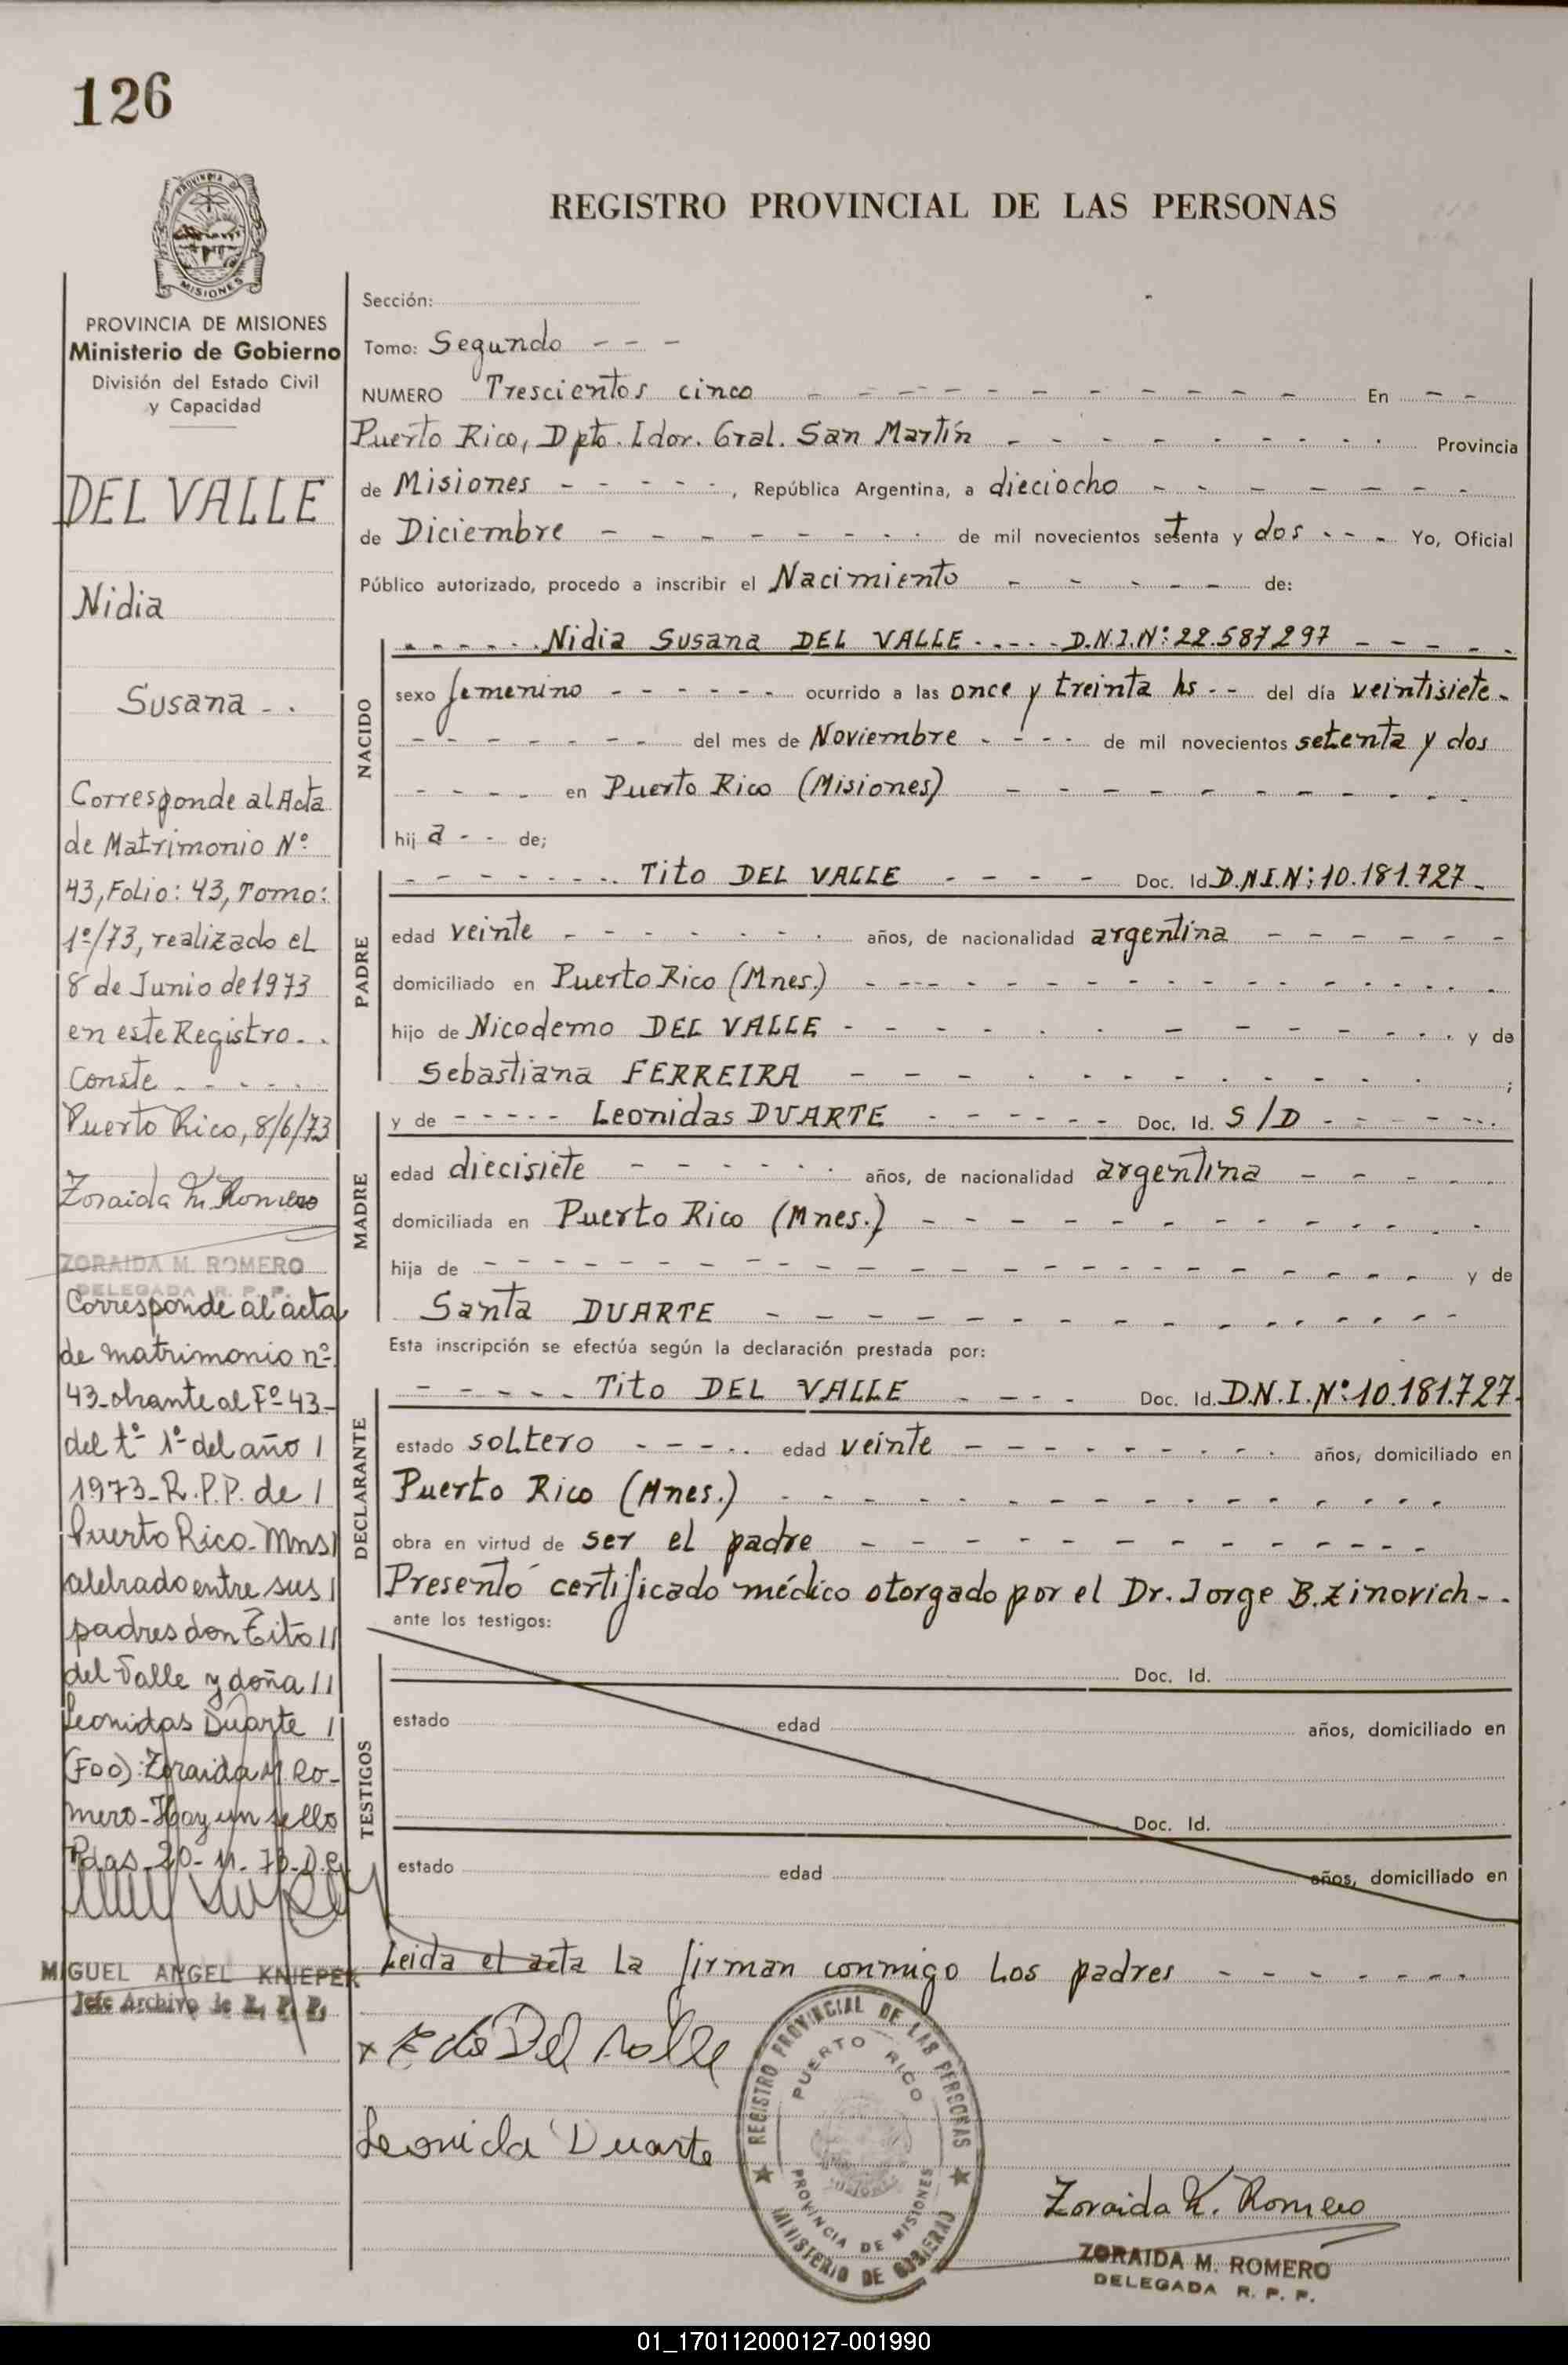 126
PROVINCIA DE
MISIONES
PROVINCIA DE MISIONES
Ministerio de Gobierno
División del Estado Civil
y Capacidad
DEL VALLE
Nidia
Susana - .
Corresponde al Acta
de Matrimonio Nº
43, Folio: 43, Tomo:
1º/73, realizado el
8 de Junio de 1973
en este Registro. .
Conste - - - - -
Puerto Rico, 8/6/73
Zoraida M. Romero
ZORAIDA M. ROMERO
DELEGADA R. P. P.
Corresponde al acta
de matrimonio nº
43-obrante al Fº 43-
del tº 1º del año /
1973-R.P.P. de /
Puerto Rico-Mns/
celebrado entre sus /
padres don Tito //
del Valle y doña //
Leonidas Duarte /
(FDO): Zoraida M. Ro-
mero-Hay un sello
Pdas-20-11-73-
MIGUEL ANGEL KNIEPEK
Jefe Archivo de R. P. P.
REGISTRO PROVINCIAL DE LAS PERSONAS
Sección:
Tomo: Segundo - - -
NUMERO Trescientos cinco - - - - - - - - - - - En - -
Puerto Rico, Dpto. Ldor. Gral. San Martín - - - - - - - - - Provincia
de Misiones - - - - -, República Argentina, a dieciocho - - - - - - -
de Diciembre - - - - - - - - de mil novecientos setenta y dos - - - Yo, Oficial
Público autorizado, procedo a inscribir el Nacimiento - - - - - de:
NACIDO
- - - - - - Nidia Susana DEL VALLE - - - - - D.N.I.Nº: 22.587.297 - - - - -
sexo femenino - - - - - - ocurrido a las once y treinta hs - - del día veintisiete -
- - - - - - - del mes de Noviembre - - - - de mil novecientos setenta y dos
- - - - en Puerto Rico (Misiones) - - - - - - - - - - -
hij a - - de;
PADRE
- - - - - - - Tito DEL VALLE - - - - Doc. Id. D.N.I.N: 10.181.727 -
edad veinte - - - - - - - años, de nacionalidad argentina - - - - - -
domiciliado en Puerto Rico (Mnes.) - - - - - - - - - - - - - - -
hijo de Nicodemo DEL VALLE - - - - - - - - - - - - - y de
Sebastiana FERREIRA - - - - - - - - - - - ;
MADRE
y de - - - - - Leonidas DUARTE - - - - - - Doc. Id. S/D - - - - -
edad diecisiete - - - - - - años, de nacionalidad argentina - - - - -
domiciliada en Puerto Rico (Mnes.) - - - - - - - - - - - - -
hija de - - - - - - - - - - - - - - - - - - - - - y de
Santa DUARTE - - - - - - - - - - - - - - -
Esta inscripción se efectúa según la declaración prestada por:
DECLARANTE
- - - - - - Tito DEL VALLE - - - - Doc. Id. D.N.I. Nº: 10.181.727-
estado soltero - - - - - edad veinte - - - - - - - - - años, domiciliado en
Puerto Rico (Mnes.) - - - - - - - - - - - - - - - -
obra en virtud de ser el padre - - - - - - - - - - - - -
Presentó certificado médico otorgado por el Dr. Jorge B. Zinovich - -
ante los testigos:
TESTIGOS
Doc. Id.
estado edad años, domiciliado en
Doc. Id.
estado edad años, domiciliado en
Leida el acta la firman conmigo los padres - - - - - - -
Del Valle
Leonida Duarte
REGISTRO PROVINCIAL DE LAS PERSONAS
PUERTO RICO
PROVINCIA DE MISIONES
MINISTERIO DE GOBIERNO
Zoraida M. Romero
ZORAIDA M. ROMERO
DELEGADA R. P. P.
01_170112000127-001990